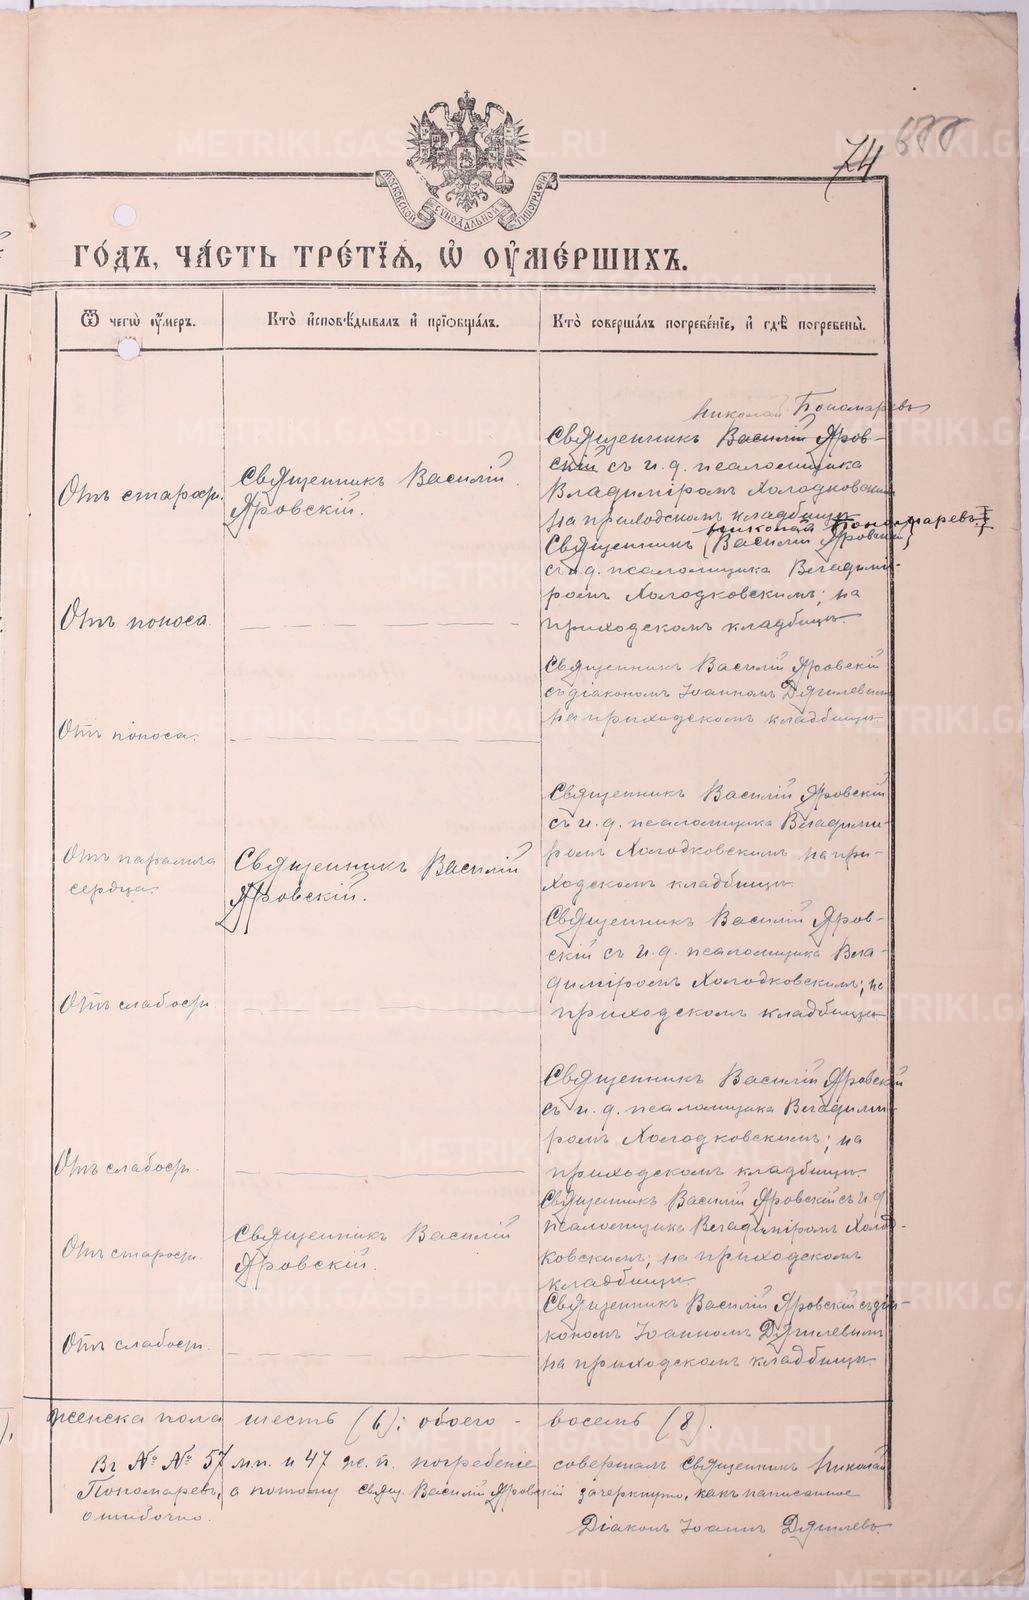 74
МОСКОВСКОЙ СѴНОДАЛЬНОЙ ТИПОГРАФІИ
ГО́ДЪ, ЧА́СТЬ ТРЕ́ТІѦ, Ѡ҆ ОУ҆МЕ́РШИХЪ.
Ѿ чегѡ̀ оу҆́меръ.
Кто̀ и҆сповѣ́дывалъ и҆ прїѡбща́лъ.
Кто̀ соверша́лъ погребе́нїе, и҆ гдѣ̀ погребены̀.
Отъ старости.
Священникъ Василій
Яровскій.
Николай Пономаревъ
Священникъ Василій Яров-
скій съ и. д. псаломщика
Владиміромъ Холодковскимъ
на приходскомъ кладбищѣ
Отъ поноса
Николай Пономаревъ
Священникъ (Василій Яровскій)
съ и. д. псаломщика Владимі-
ромъ Холодковскимъ; на
приходскомъ кладбищѣ.
Отъ поноса.
Священникъ Василій Яровскій
съ діакономъ Іоанномъ Дягилевымъ
на приходскомъ кладбищѣ.
Отъ паралича
сердца.
Священникъ Василій
Яровскій.
Священникъ Василій Яровскій
съ и. д. псаломщика Владими-
ромъ Холодковскимъ на при-
ходскомъ кладбищѣ.
Отъ слабости
Священникъ Василій Яров-
скій съ и. д. псаломщика Вла-
диміромъ Холодковскимъ; на
приходскомъ кладбищѣ.
Отъ слабости.
Священникъ Василій Яровскій
съ и. д. псаломщика Владими-
ромъ Холодковскимъ; на
приходскомъ кладбищѣ.
Отъ старости.
Священникъ Василій
Яровскій.
Священникъ Василій Яровскій съ и. д.
псаломщика Владиміромъ Холод-
ковскимъ; на приходскомъ
кладбищѣ.
Отъ слабости.
Священникъ Василій Яровскій съ діа-
кономъ Іоанномъ Дягилевымъ
на приходскомъ кладбищѣ.
женска пола шесть (6); обоего - восемь (8).
Въ № № 57 м.п. и 47 ж. п. погребеніе совершалъ священникъ Николай
Пономаревъ, а потому свящ. Василій Яровскій зачеркнуто, какъ написанное
ошибочно.
Діаконъ Іоаннъ Дягилевъ.
METRIKI.GASO-URAL.RU